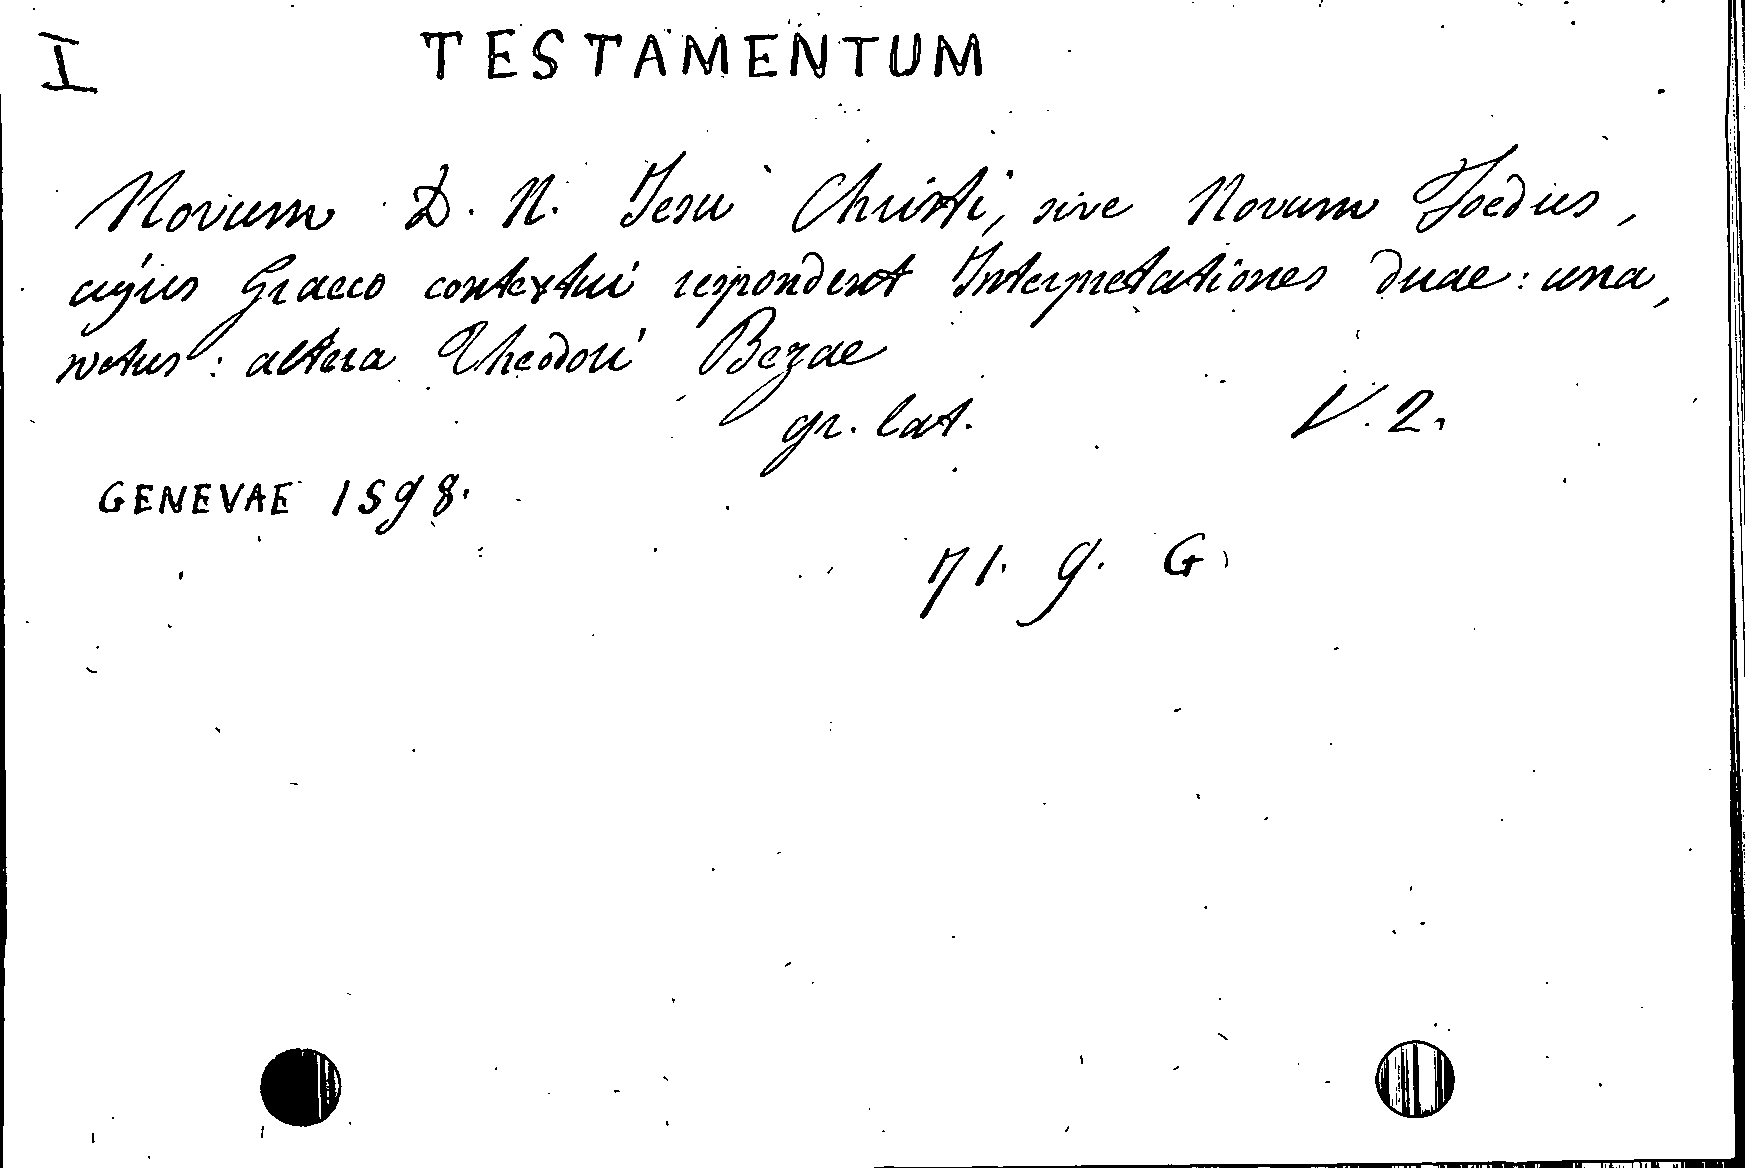 I TESTAMENTUM
Novum D. N. Jesu Christi, sive Novum Foedus,
cujus Graeco contextui respondent Interpretationes duae: una,
vetus: altera Theodori Bezae
gr. lat. V. 2.
GENEVAE 1598.
71. g. G.